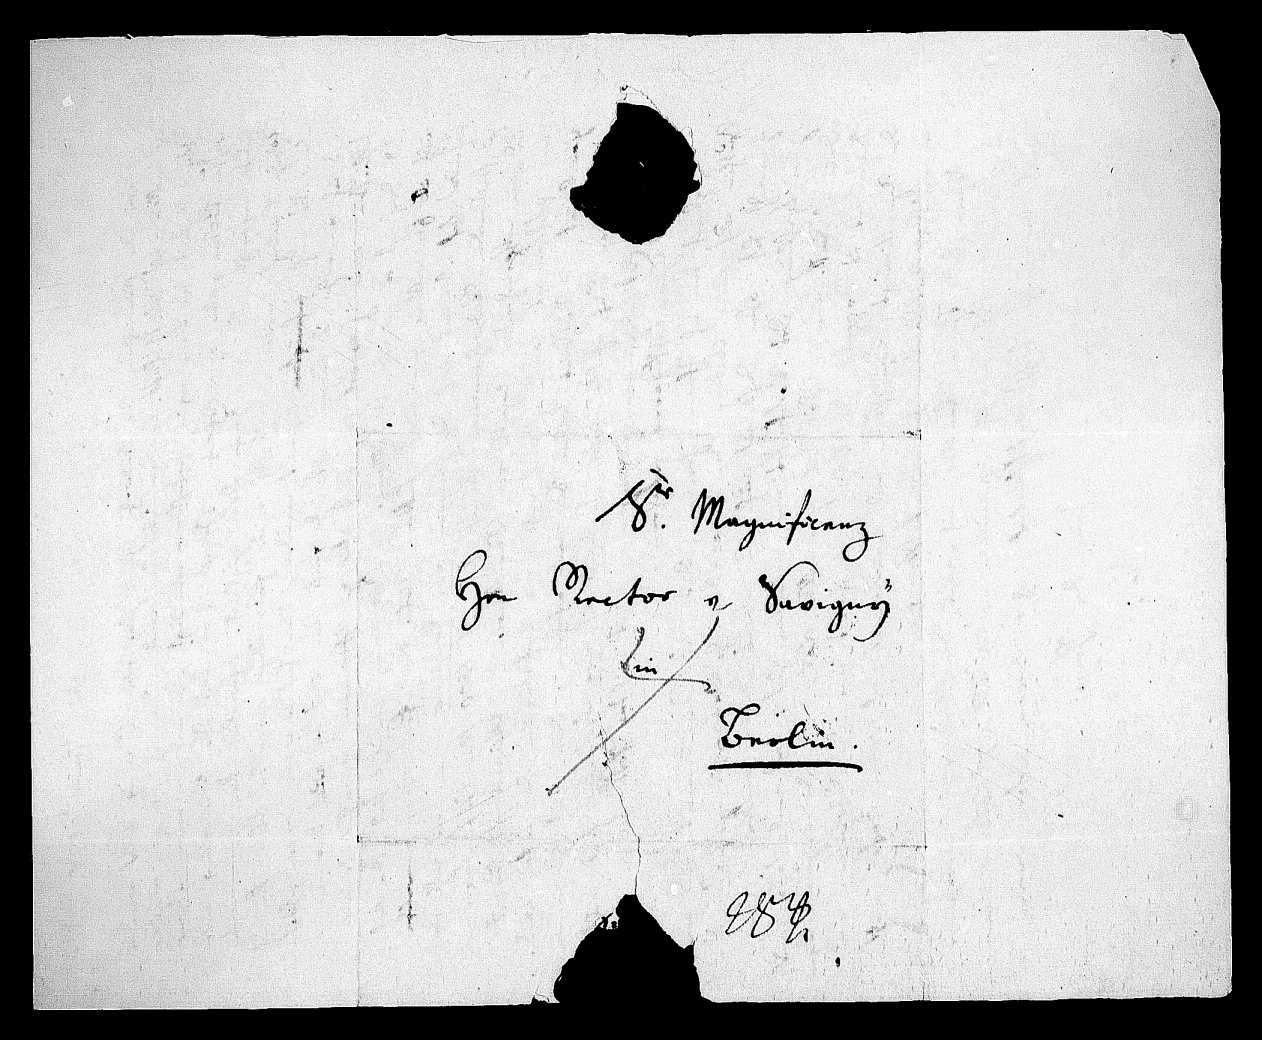 Sr. Magnificenz
Hrn Rector v Savigny
in
Berlin.